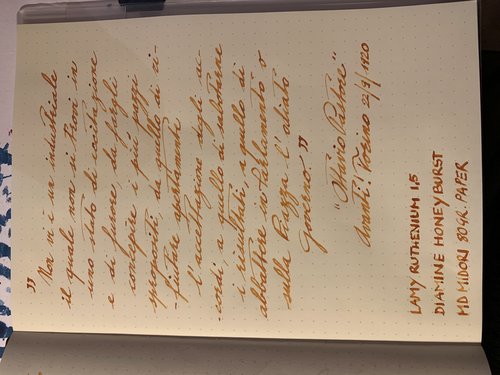 "Non vi è un industriale
il quale non si trovi in
uno stato di eccitazione
e di furore, da fargli
concepire i più pazzi
propositi, da quello di ri-
-fiutare apertamente
l'accettazione degli ac-
-cordi a quello di subirne
i risultati, a quello di
abbattere in Parlamento o
sulla Piazza l'odiato
governo."
"Ottavio Pastore"
Avanti! Torino 22/9/1920
LAMY RUTHENIUM 1.5
DIAMINE HONEY BURST
MD MIDORI 80GR. PAPER